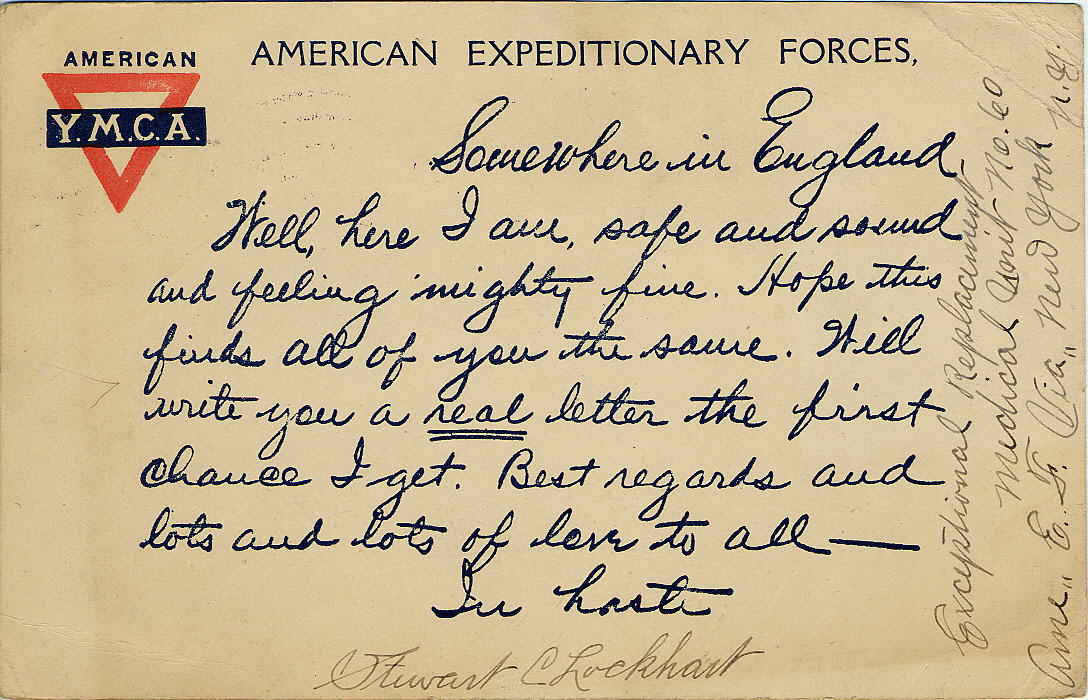 AMERICAN
Y.M.C.A.
AMERICAN EXPEDITIONARY FORCES,
Somewhere in England,
Well, here I am, safe and sound
and feeling mighty fine. Hope this
finds all of you the same. Will
write you a real letter the first
chance I get. Best regards and
lots and lots of love to all —
In haste
Stewart C Lockhart
Exceptional Replacement
Medical Unit No. 60
Ame.. E. F. Via.. New York N.Y.